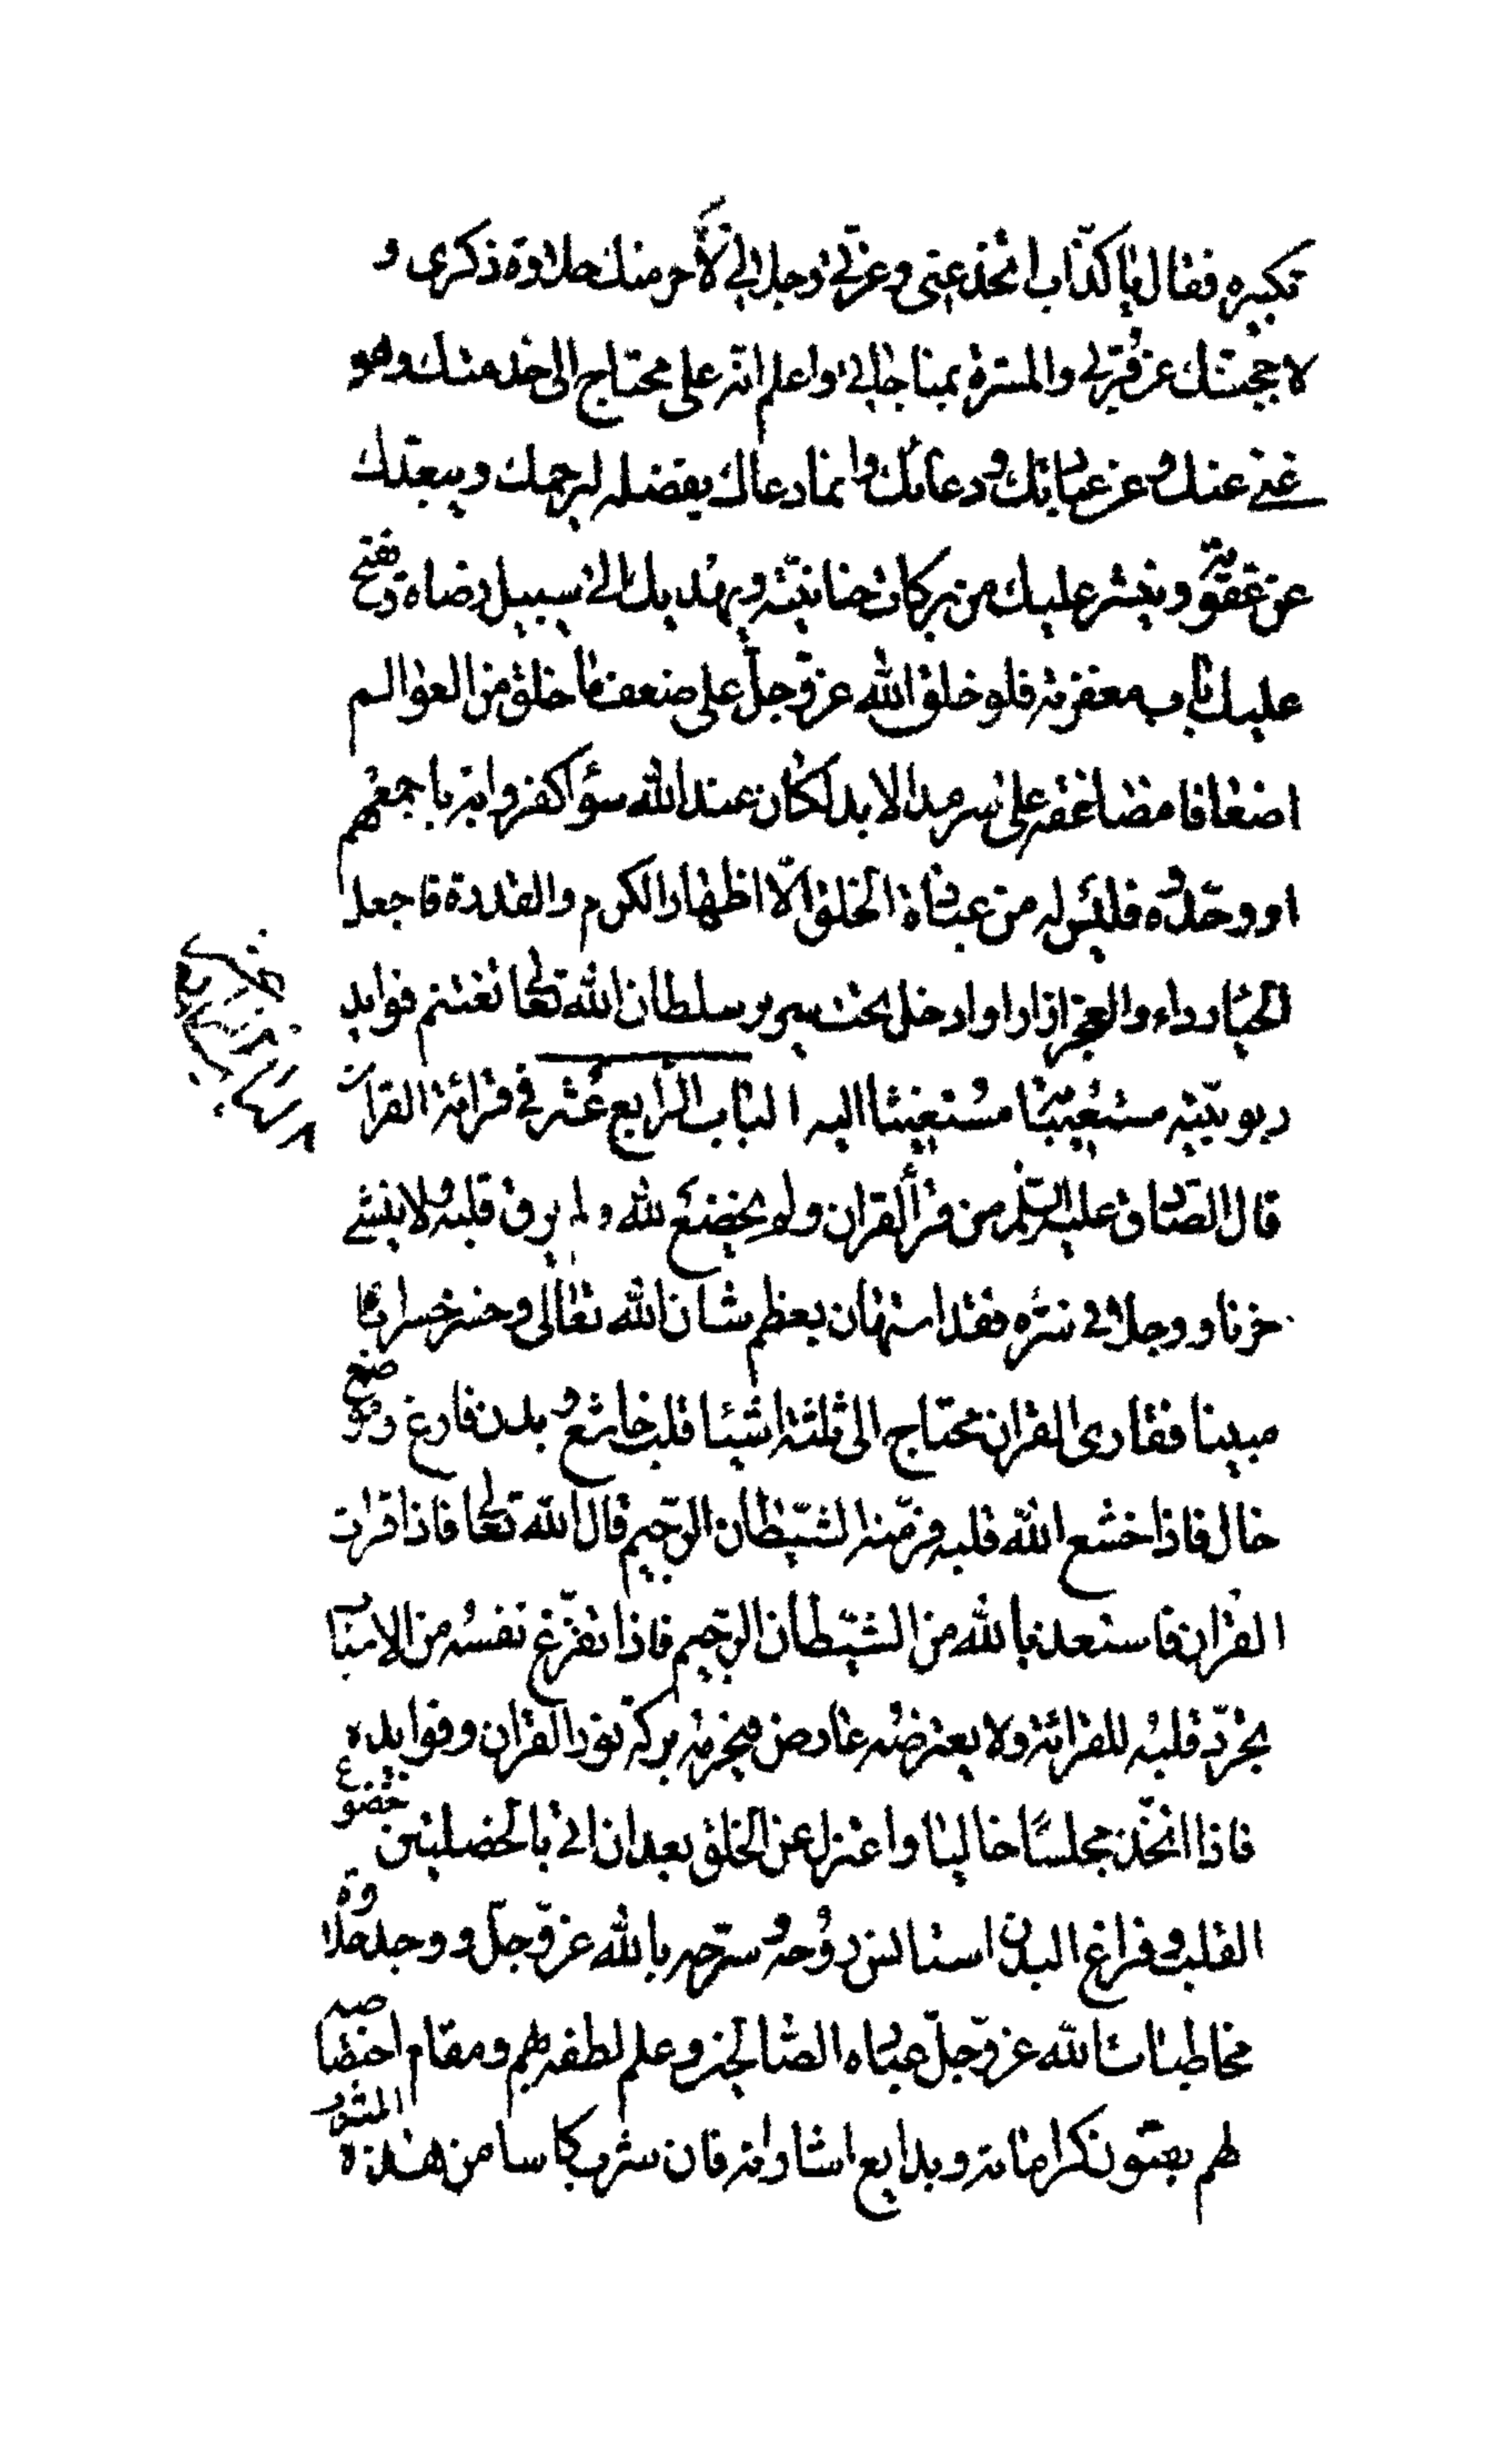 تكبيره فقال يا كذّاب اتخدعنى وعزتى وجلالى لأحرمنك حلاوة ذكرى و
لاحجبنك عن قربى والمسرة بمناجاتى واعلم انه على محتاج الى خدمتك وهو
غنى عنك وعن عبادتك ودعائك وانما دعاك بفضله ليرحمك ويبعدك
عن عقوبته وينشر عليك من بركات حنانيته ويهديك الى سبيل رضاه ويفتح
عليك باب مغفرته فلو خلق الله عز وجلّ على ضعف ما خلق من العوالم
اضعافا مضاعفه على سرمد الابد لكان عند الله سؤا كفروا به باجمعهم
او وحّدوه فليس له من عبادة الخلق الّا اظهار الكرم والقدرة فاجعل
الحياء رداء والعجز ازارا وادخل تحت سرير سلطان الله تعالى تغتنم فوايد
ربوبيّته مستعينا به مستغيثا اليه الباب الرابع عشر فى قرائة القرآن
قال الصّادق عليه السّلم من قرأ القران ولم يخضع لله ولم يرق قلبه ولا ينشئ
حزنا و وجلا فى سرّه فقد استهان بعظم شان الله تعالى وخسر خسرانا
مبينا فقارى القران محتاج الى ثلثة اشيئا قلب خاشع وبدن فارغ وموضع
خال فاذا خشع لله قلبه فرّ منه الشيّطان الرّجيم قال الله تعالى فاذا قرات
القران فاستعذ بالله من الشيّطان الرّجيم فاذا تفرّغ نفسه من الاسباب
تجرّد قلبه للقرائة ولا يعترضه عارض فيحرمه بركة نور القران وفوايده
فاذا اتخّذ مجلسًا خاليا واعتزل عن الخلق بعد ان اتى بالخصلتين خضوع
القلب وفراغ البدن استانس روُحه وسرّه بالله عزّ وجلّ و وجد حلاوة
مخاطبات الله عزّ وجلّ عباده الصّالحين وعلم لطفه بهم ومقام اختصاصه
لهم بفنون كراماته وبدايع اشاراته فان شرب كاسا من هذا المشرب